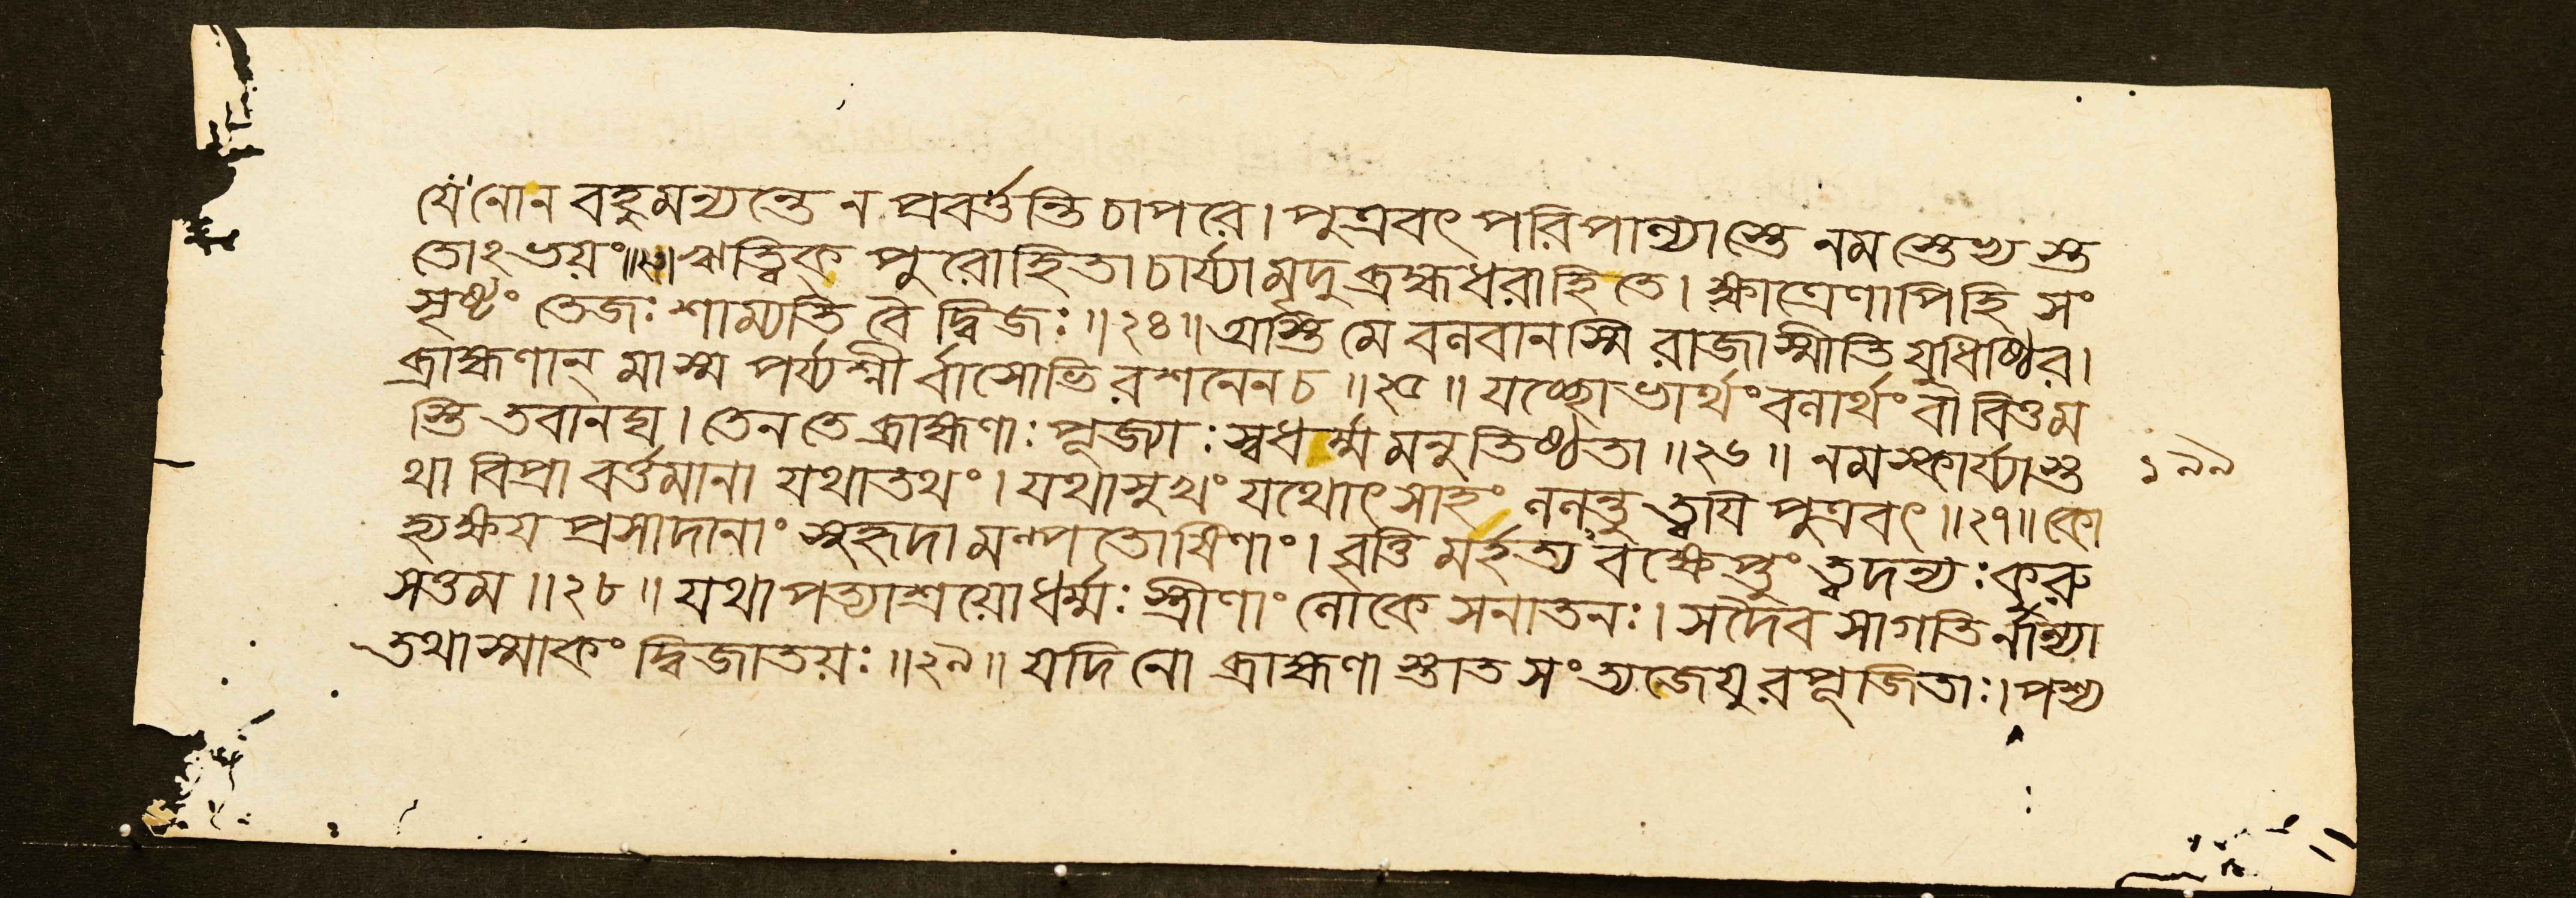 যে নো ন বহুমন্যন্তে ন প্রবর্ত্তন্তি চাপরে। পুত্রবৎ পরিপাল্যাস্তে নমস্তেভ্যস্ত
তোঽভয়ং॥২৩॥ঋত্বিক্ পুরোহিতাচার্য্যা মৃদুব্রহ্মধরাহিতে। ক্ষাত্রেণাপিহি সং
সৃষ্টং তেজঃ শাম্যতি বৈ দ্বিজঃ॥২৪॥অস্তি মে বলবানস্মি রাজাস্মীতি যুধিষ্ঠির।
ব্রাহ্মণান্ মাস্ম পর্য্যশ্নী র্বাসোভিরশনেন চ॥২৫॥ যচ্ছোভার্থং বলার্থং বা বিত্তম
স্তি তবানঘ। তেন তে ব্রাহ্মণাঃ পূজ্যাঃ স্বধর্ম্মমনুতিষ্ঠতা॥২৬॥ নমস্কার্য্যাস্ত
থা বিপ্রা বর্ত্তমানা যথাতথং। যথাসুখং যথোৎসাহং ললন্তু ত্বয়ি পুত্রবৎ॥২৭॥কো
হ্যক্ষয়প্রসাদানাং সুহৃদামল্পতোষিণাং। বৃত্তিমর্হত্যবক্ষেপ্তুং ত্বদন্যঃ কুরু
সত্তম॥২৮॥ যথা পত্যাশ্রয়ো ধর্ম্মঃ স্ত্রীণাং লোকে সনাতনঃ। সদৈব সা গতির্নান্যা
তথাস্মাকং দ্বিজাতয়ঃ॥২৯॥ যদি নো ব্রাহ্মণাস্তাত সংত্যজেযুরপূজিতাঃ। পশ্য
১৯৯